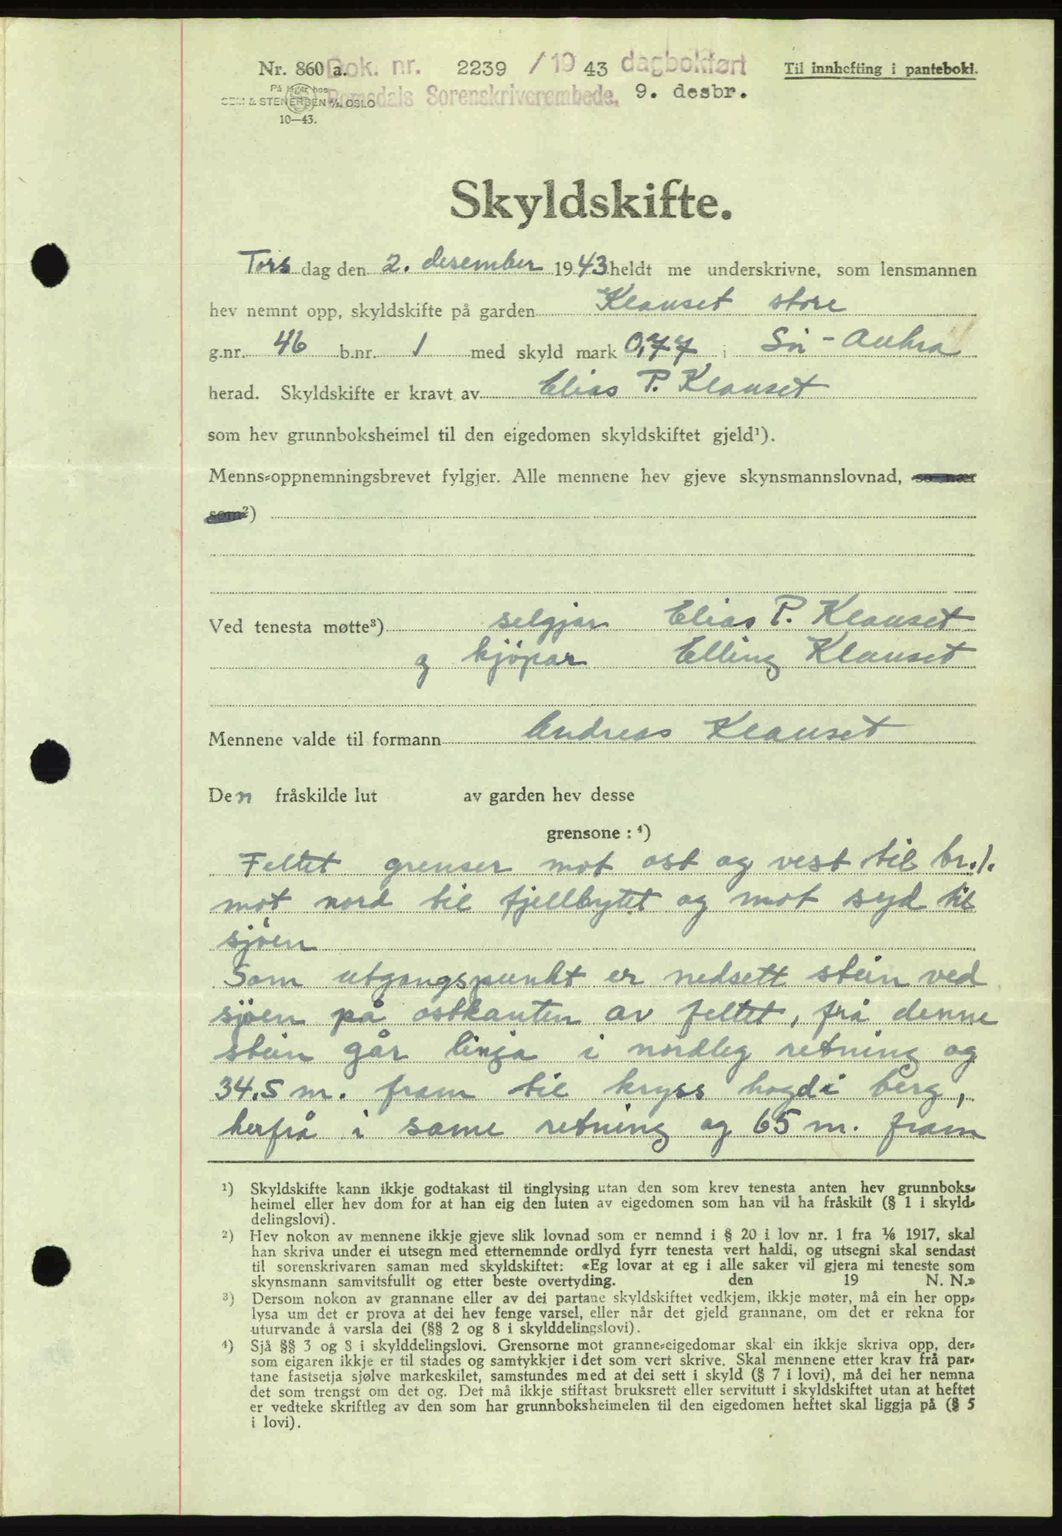 Nr. 860 a. Dok. nr. 2239 / 19 43 dagbokført Til innhefting i pantebokl.
På lager hos Romsdals Sorenskriverembede. 9. desbr.
SEM & STENERSEN A/S, OSLO
10—43.
Skyldskifte.
Tors dag den 2. desember 1943 heldt me underskrivne, som lensmannen
hev nemnt opp, skyldskifte på garden Klauset store
g.nr. 46 b.nr. 1 med skyld mark 0,77 i Sör-Aukra
herad. Skyldskifte er kravt av Elias P. Klauset
som hev grunnboksheimel til den eigedomen skyldskiftet gjeld¹).
Menns-oppnemningsbrevet fylgjer. Alle mennene hev gjeve skynsmannslovnad, so nær
som²)
Ved tenesta møtte³) selgjar Elias P. Klauset
og kjöpar Elling Klauset
Mennene valde til formann Andreas Klauset
Den fråskilde lut av garden hev desse
grensone : ⁴)
Feltet grenser mot ost og vest til br. 1.
mot nord til fjellbytet og mot syd til
sjöen
Som utgangspunkt er nedsett stein ved
sjöen på ostkanten av feltet, frå denne
stein går linja i nordleg retning og
34.5 m. fram til kryss hogd i berg,
herfrå i same retning og 65 m. fram
¹) Skyldskifte kann ikkje godtakast til tinglysing utan den som krev tenesta anten hev grunnboks-
heimel eller hev dom for at han eig den luten av eigedomen som han vil ha fråskilt (§ 1 i skyld-
delingslovi).
²) Hev nokon av mennene ikkje gjeve slik lovnad som er nemnd i § 20 i lov nr. 1 fra ¹/₆ 1917, skal
han skriva under ei utsegn med etternemnde ordlyd fyrr tenesta vert haldi, og utsegni skal sendast
til sorenskrivaren saman med skyldskiftet: «Eg lovar at eg i alle saker vil gjera mi teneste som
skynsmann samvitsfullt og etter beste overtyding. den 19 N. N.»
³) Dersom nokon av grannane eller av dei partane skyldskiftet vedkjem, ikkje møter, må ein her opp-
lysa um det er prova at dei hev fenge varsel, eller når det gjeld grannane, om det er rekna for
uturvande å varsla dei (§§ 2 og 8 i skylddelingslovi).
⁴) Sjå §§ 3 og 8 i skylddelingslovi. Grensorne mot granne-eigedomar skal ein ikkje skriva opp, der-
som eigaren ikkje er til stades og samtykkjer i det som vert skrive. Skal mennene etter krav frå par-
tane fastsetja sjølve markeskilet, samstundes med at dei sett i skyld (§ 7 i lovi), må dei her nemna
det som trengst om det og. Det må ikkje stiftast bruksrett eller servitutt i skyldskiftet utan at heftet
er vedteke skriftleg av den som har grunnboksheimelen til den eigedomen heftet skal liggja på (§ 5
i lovi).